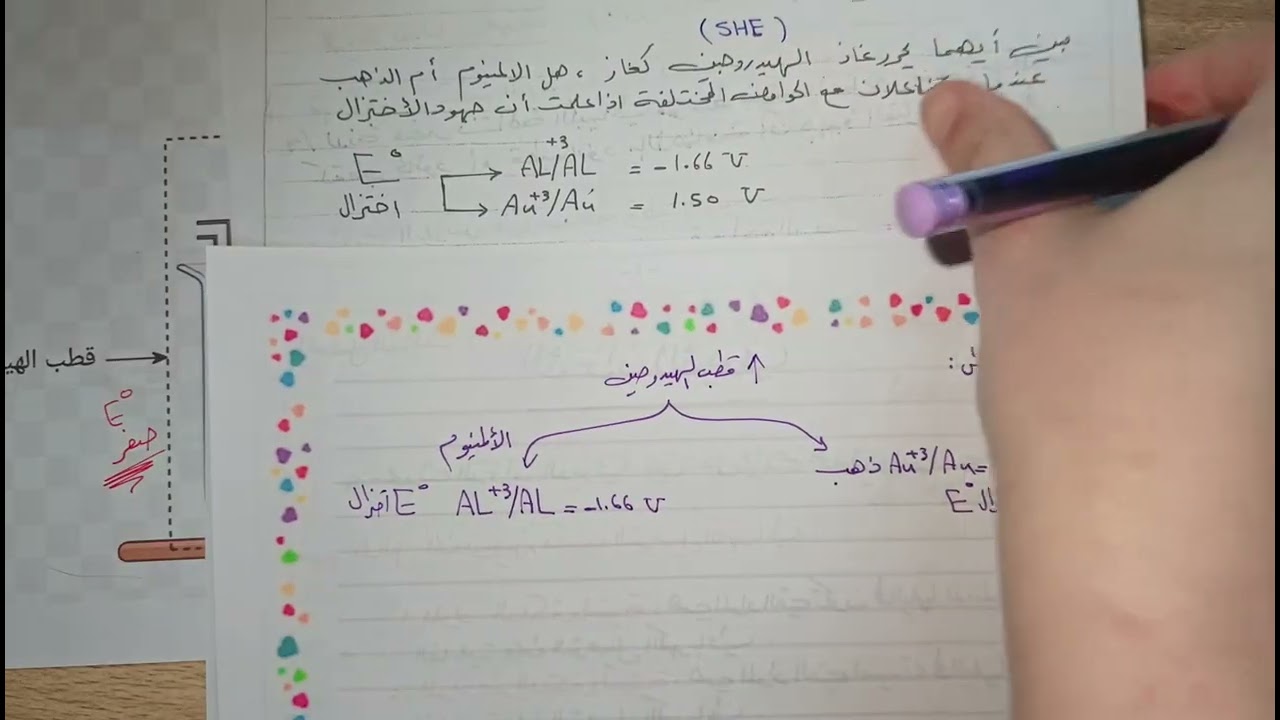 (SHE)
بين أيهما يحرر غاز الهيدروجين كغاز ، هل الالمنيوم أم الذهب
عندما مع الحوامض المختلفة اذا علمت أن جهود الأختزال
E° AL+3/AL = -1.66 V
اختزال Au+3/Au = 1.50 V
قطب الهي
E°
صفر
↑ قطب الهيدروجين
الألمنيوم
ذهب Au+3/Au=
اختزال E° AL+3/AL = -1.66 V
E°